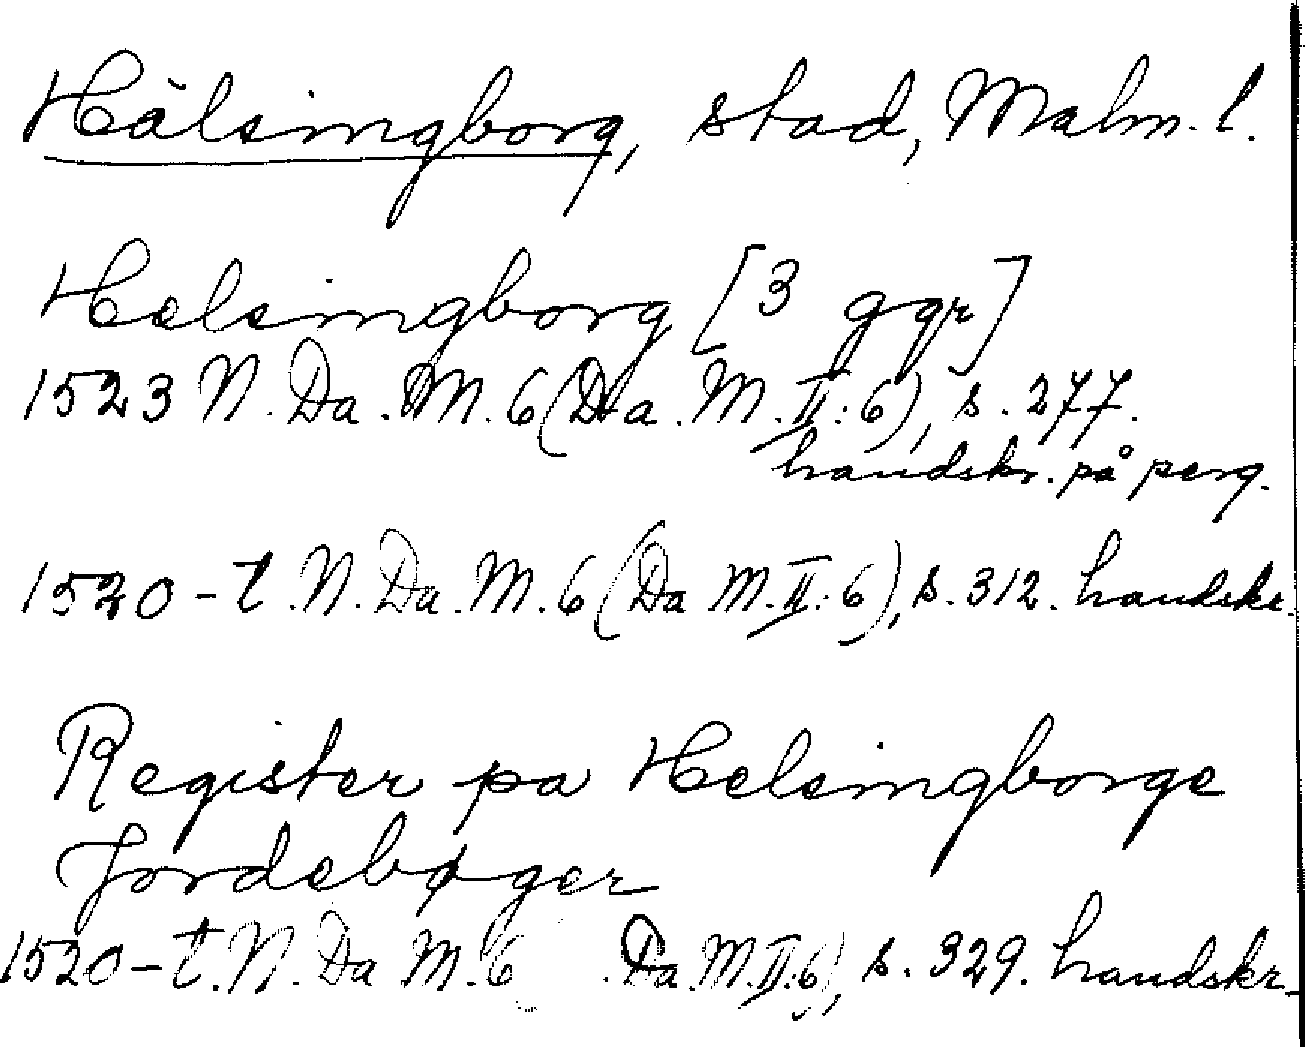 Hälsingborg, stad, Malm. l.
Helsingborg [3 ggr]
1523 N. Da. M. 6 (Da. M. II: 6), s. 277.
handskr. på perg.
1520-t. N. Da. M. 6 (Da M. II: 6), s. 312. handskr.
Register pa Helsingborgs
Jordebøger
1520-t. N. Da M. 6 Da. M. II: 6), s. 329. handskr.